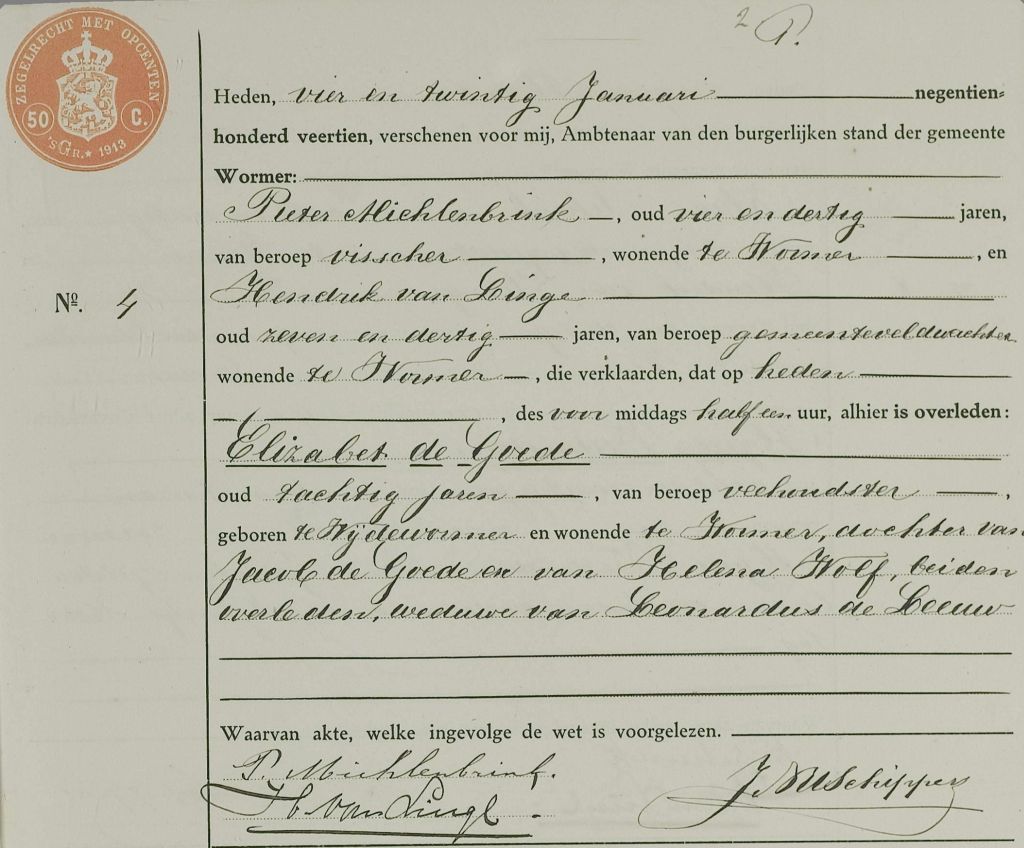 2 P.
ZEGELRECHT MET OPCENTEN
50 C.
'sGr. * 1913
Heden, vier en twintig Januari negentien=
honderd veertien, verschenen voor mij, Ambtenaar van den burgerlijken stand der gemeente
Wormer:
Pieter Michlenbrink, oud vier en dertig jaren,
van beroep visscher, wonende te Wormer, en
Nº. 4
Hendrik van Linge
oud zeven en dertig jaren, van beroep gemeenteveldwachter
wonende te Wormer, die verklaarden, dat op heden
, des voor middags half een uur, alhier is overleden:
Elizabet de Goede
oud tachtig jaren, van beroep veehoudster,
geboren te Wijdewormer en wonende te Wormer, dochter van
Jacob de Goede en van Helena Wolf, beiden
overleden, weduwe van Leonardus de Leeuw
Waarvan akte, welke ingevolge de wet is voorgelezen.
P. Michlenbrink.
H. van Linge.
Schipper